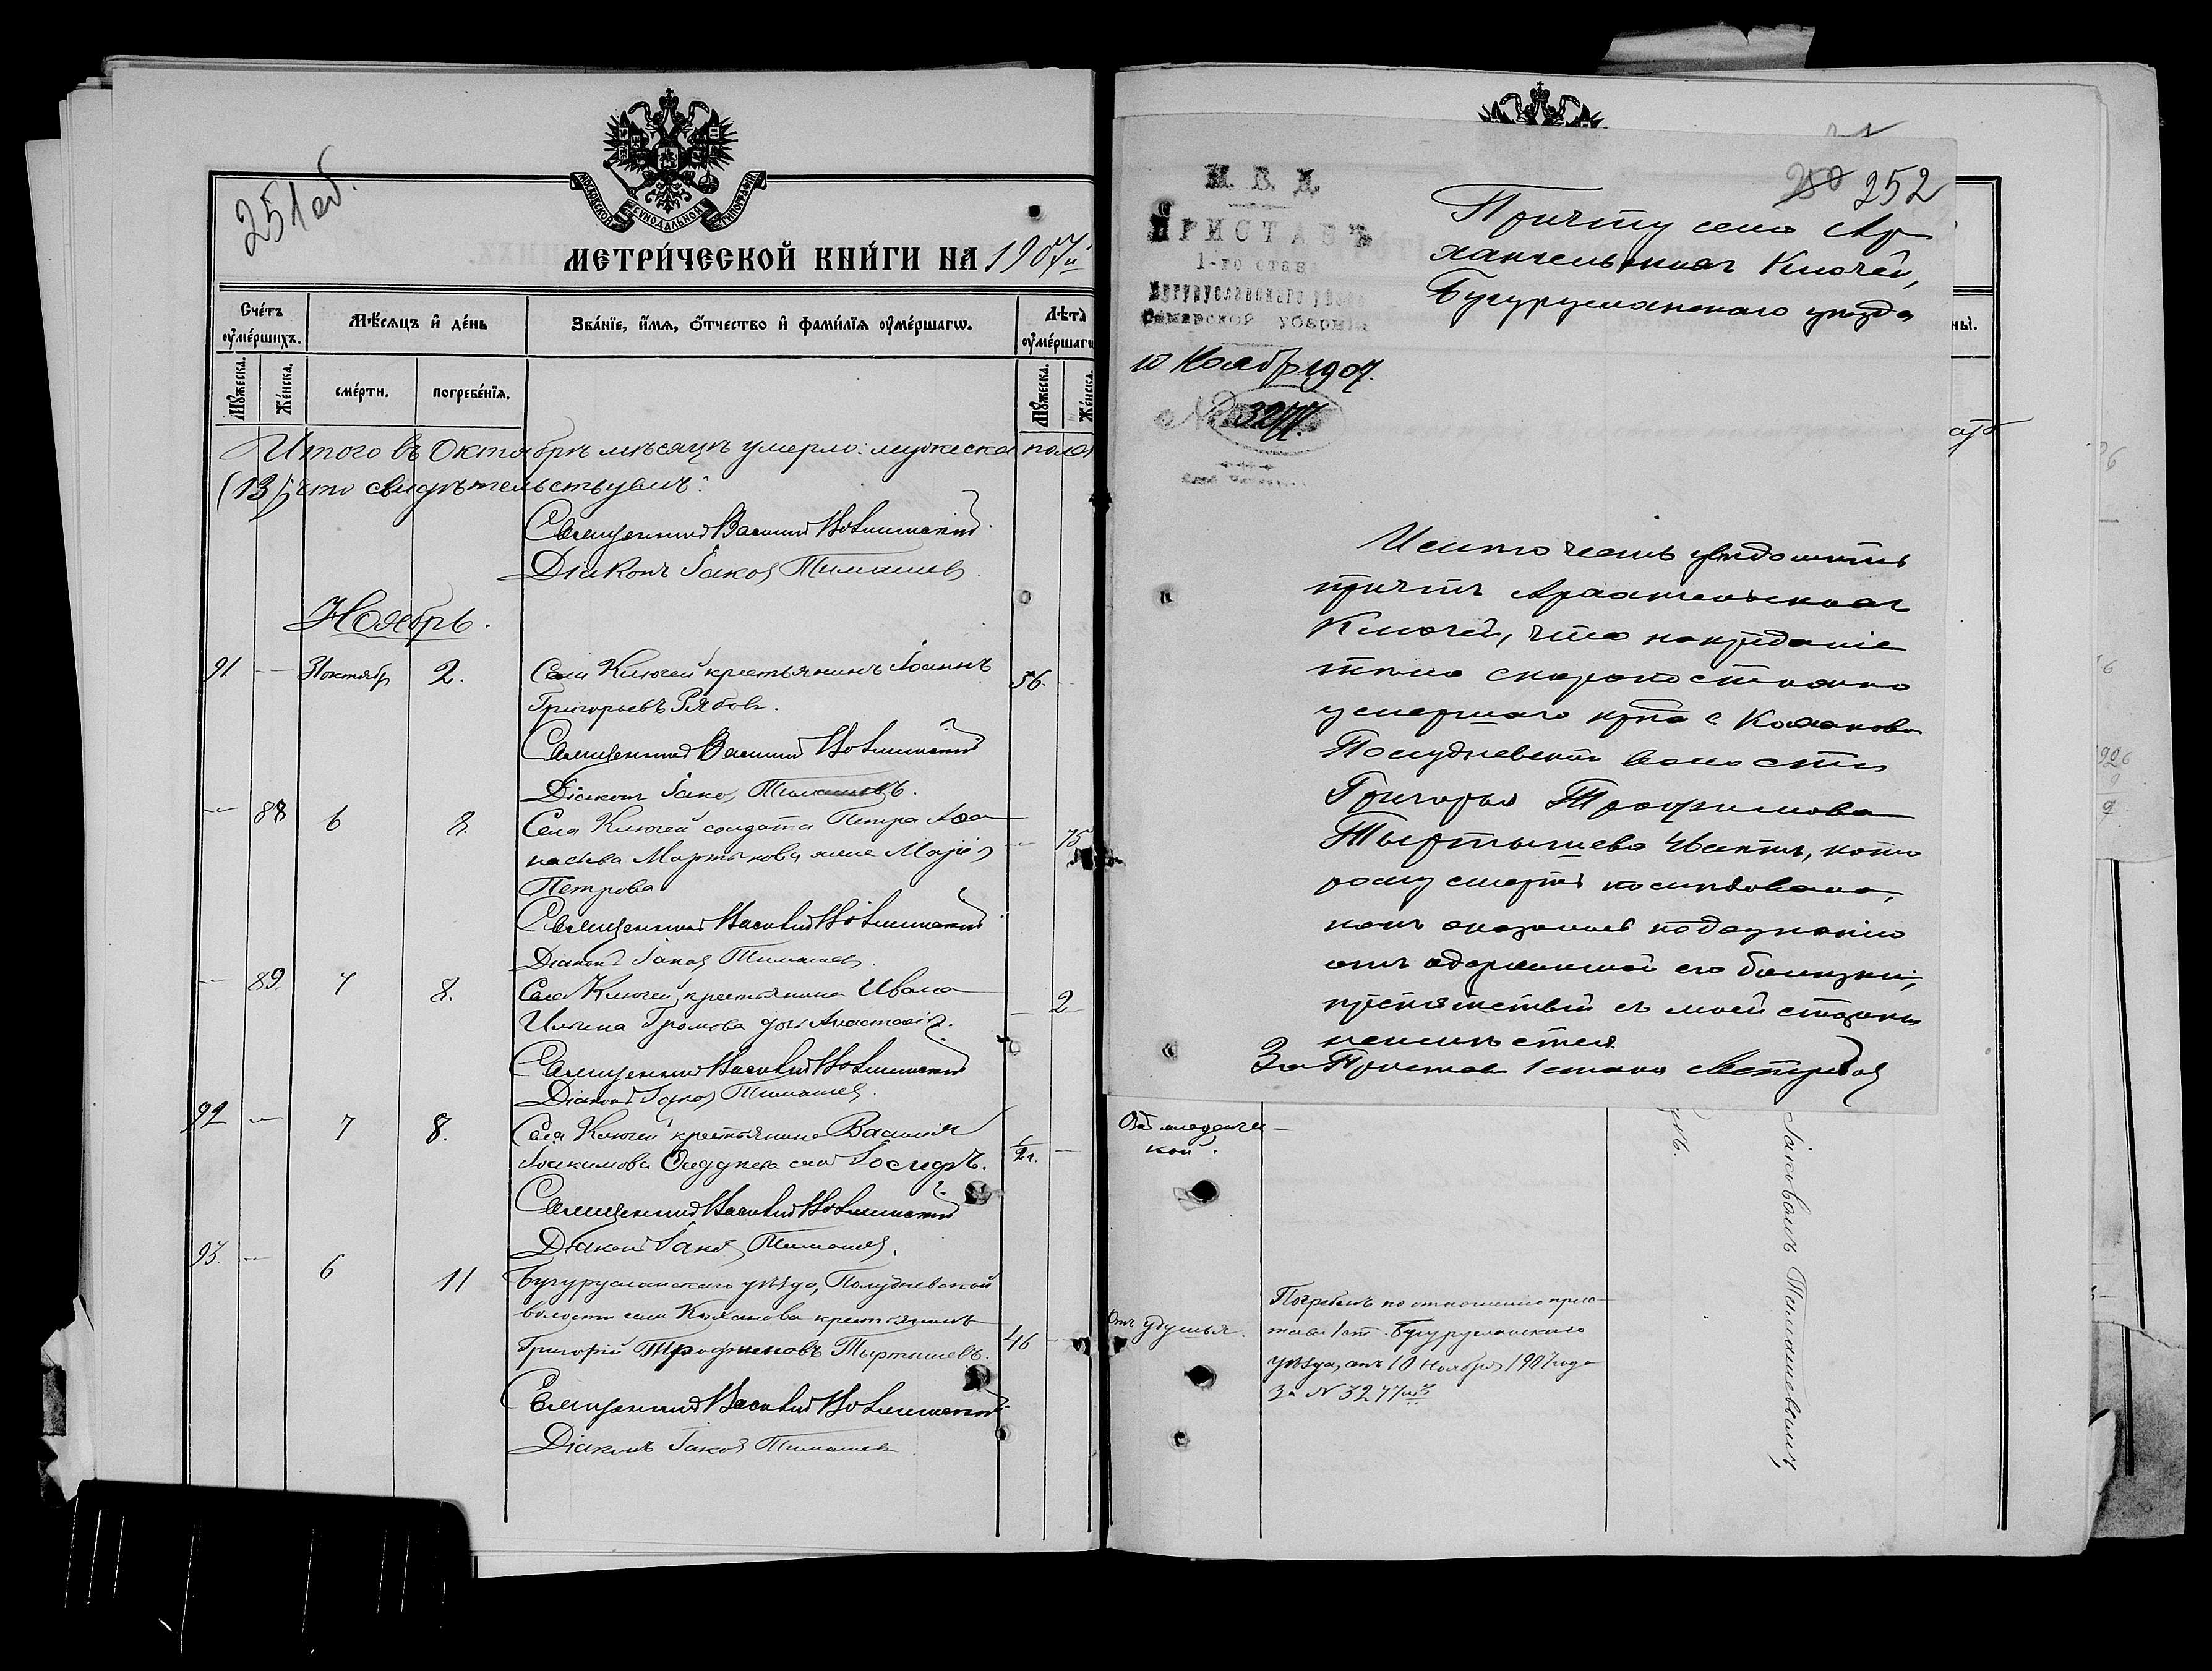 251 об.
МОСКОВСКОЙ СѴНОДАЛЬНОЙ ТИПОГРАФІИ
МЕТРИ́ЧЕСКОЙ КНИ́ГИ НА 1907й
Счéтъ ѹмéршихъ.
Мѣ́сяцъ и҆ дéнь
Звáнїе, и҆́мя, ѻ҆́тчество и҆ фамѝлїя ѹмéршагѡ.
Лѣтà ѹмéршагѡ
Мꙋ́жеска.
Жéнска.
смéрти.
погребéнїя.
Мꙋ́жеска.
Жéнска.
Итого въ Октябрѣ мѣсяцѣ умерло: мужеска пола
(13), что свидѣтельствуемъ:
Священникъ Василій
Діаконъ Іаковъ Тимашев
Ноябрь.
91 — 31 октябр 2. Села Ключей крестьянинъ Іоаннъ 56. —
Григорьевъ Рябовъ.
Священникъ Василій
Діаконъ Іаков Тимашевъ.
— 88 6 8. Села Ключей солдата Петра Афа- — 75
насьева Мартынова жена Марія
Петрова
Священникъ Василій
Діаконъ Іаков Тимашев.
— 89. 7 8. Села Ключей крестьянина Ивана — 2
Ильина Громова дочь Анастасія.
Священникъ Василій
Діаконъ Іаков Тимашев.
92 — 7 8. Села Ключей крестьянина Василія —
Іоакимова сын Іосифъ.
Священникъ Василій
Діаконъ Іаков Тимашев.
93. — 6 11 Бугурусланскаго уѣзда, Полудневской
волости села Коханова крестьянинъ
Григорій Трофимовъ Тыртышевъ. 46 —
Священникъ Василій
Діаконъ Іаков Тимашев
М. В. Д.
ПРИСТАВЪ
1-го стана
Бугурусланскаго уѣзда
Самарской губерніи
10 Ноября 1907.
№ 3277.
250 252
Причту села Ар
хангельских Ключей,
Бугурусланскаго уѣзда
Имѣю честь увѣдомить
причтъ Архангельских
Ключей, что на преданіе
тѣла скоропостижно
умершаго крна с Коханова
Полудневской волости
Григорья Трофимова
Тыртышева землѣ, кото
рому смерть послѣдовала,
какъ оказалось по дознанію
отъ одержимой его болѣзни,
препятствій съ моей стороны
неимѣется.
За Пристава 1 стана
ны.
От младенче-
ской.
Отъ удушья.
Погребенъ по отношенію прис-
тава 1 ст. Бугурусланскаго
уѣзда, отъ 10 Ноября 1907 года
За № 3277мъ
Іаковомъ Тимашевымъ,